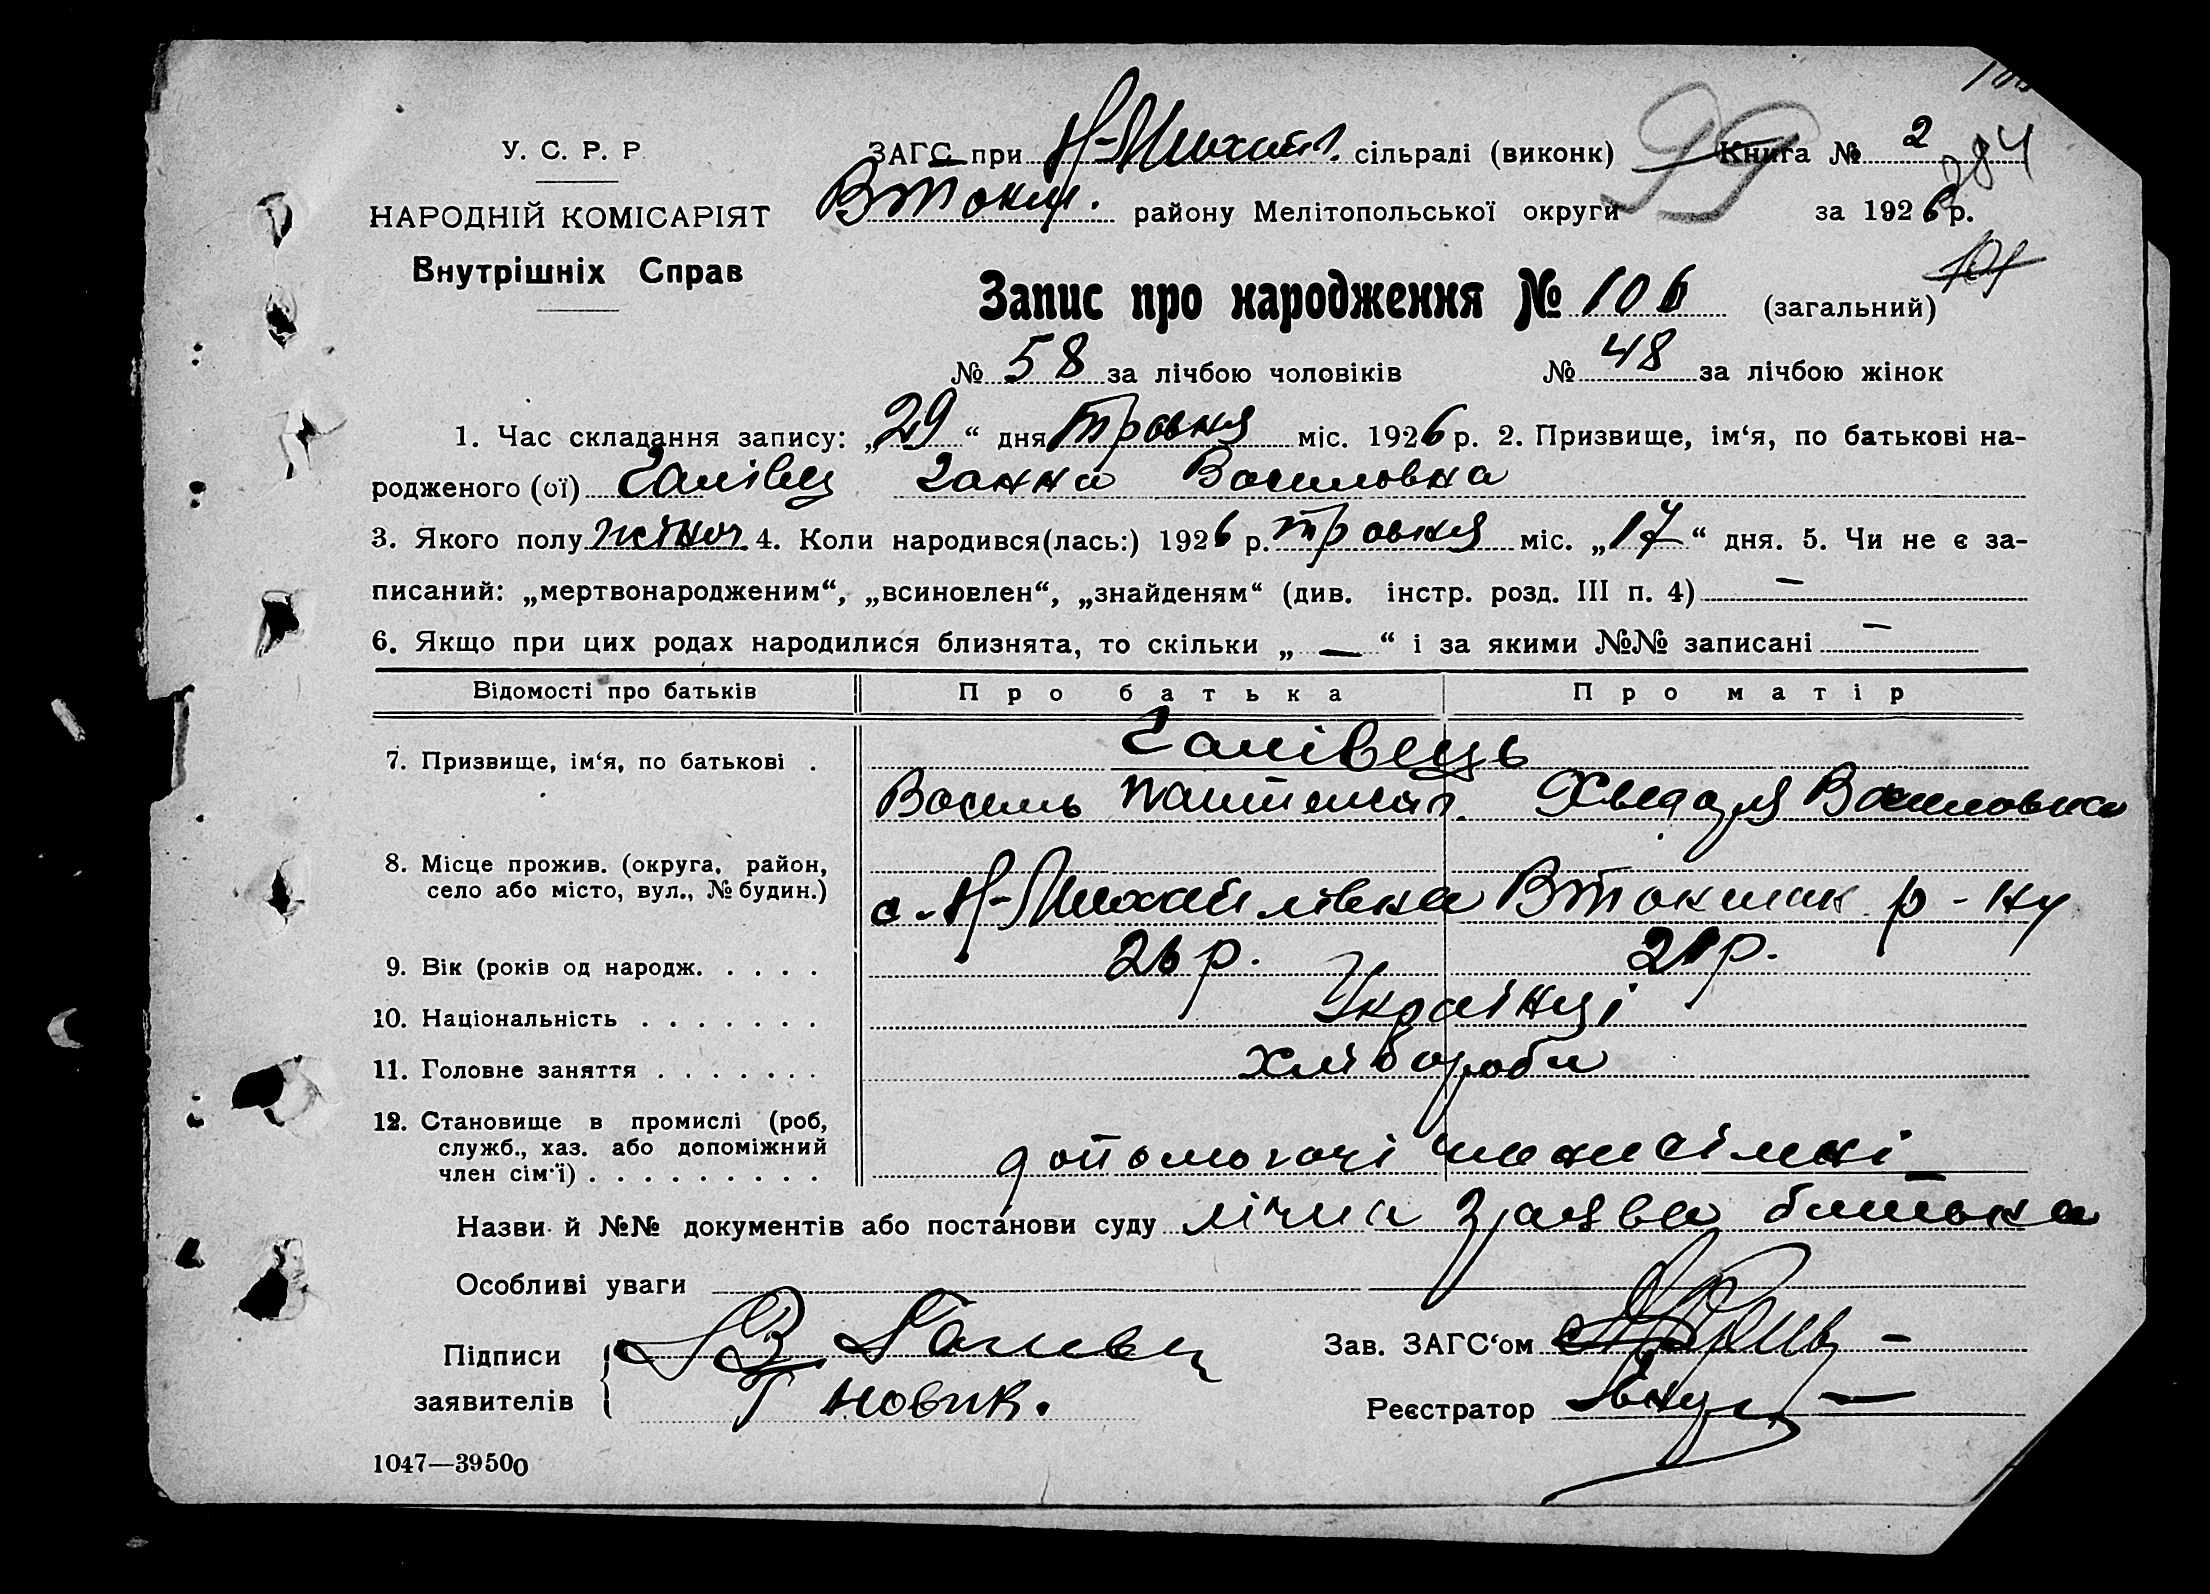 У. С. Р. Р.
НАРОДНІЙ КОМІСАРІЯТ
Внутрішніх Справ
ЗАГС при Н-Михайл. сільраді (виконк) Книга № 2
99
284
ВТокм. району Мелітопольської округи за 1926 р.
Запис про народження № 106 (загальний)
№ 58 за лічбою чоловіків № 48 за лічбою жінок
1. Час складання запису: „29“ дня травня міс. 1926 р. 2. Призвище, ім‘я, по батькові на-
родженого (ої) Галівец Ганна Василовна
3. Якого полу жіноч. 4. Коли народився(лась:) 1926 р. травня міс. „17“ дня. 5. Чи не є за-
писаний: „мертвонародженим“, „всиновлен“, „знайденям“ (див. інстр. розд. III п. 4) —
6. Якщо при цих родах народилися близнята, то скільки „ — “ і за якими №№ записані —
Відомості про батьків Про батька Про матір
7. Призвище, ім‘я, по батькові . Галівець
Василь Хведора Василовна
8. Місце прожив. (округа, район,
село або місто, вул., № будин.) с. Н-Михайлівка ВТокмак р-ну
9. Вік (років од народж. . . . . 26 р. 21 р.
10. Національність . . . . . . . Українці
11. Головне заняття . . . . . . . хлібороби
12. Становище в промислі (роб,
служб., хаз. або допоміжний
член сім‘ї) . . . . . . . . . допомогочі члени сімї
Назви й №№ документів або постанови суду лічна заява батька
Особливі уваги
Підписи
заявителів
В. Галівец
Г Новик.
Зав. ЗАГС‘ом
Реєстратор
1047—39500